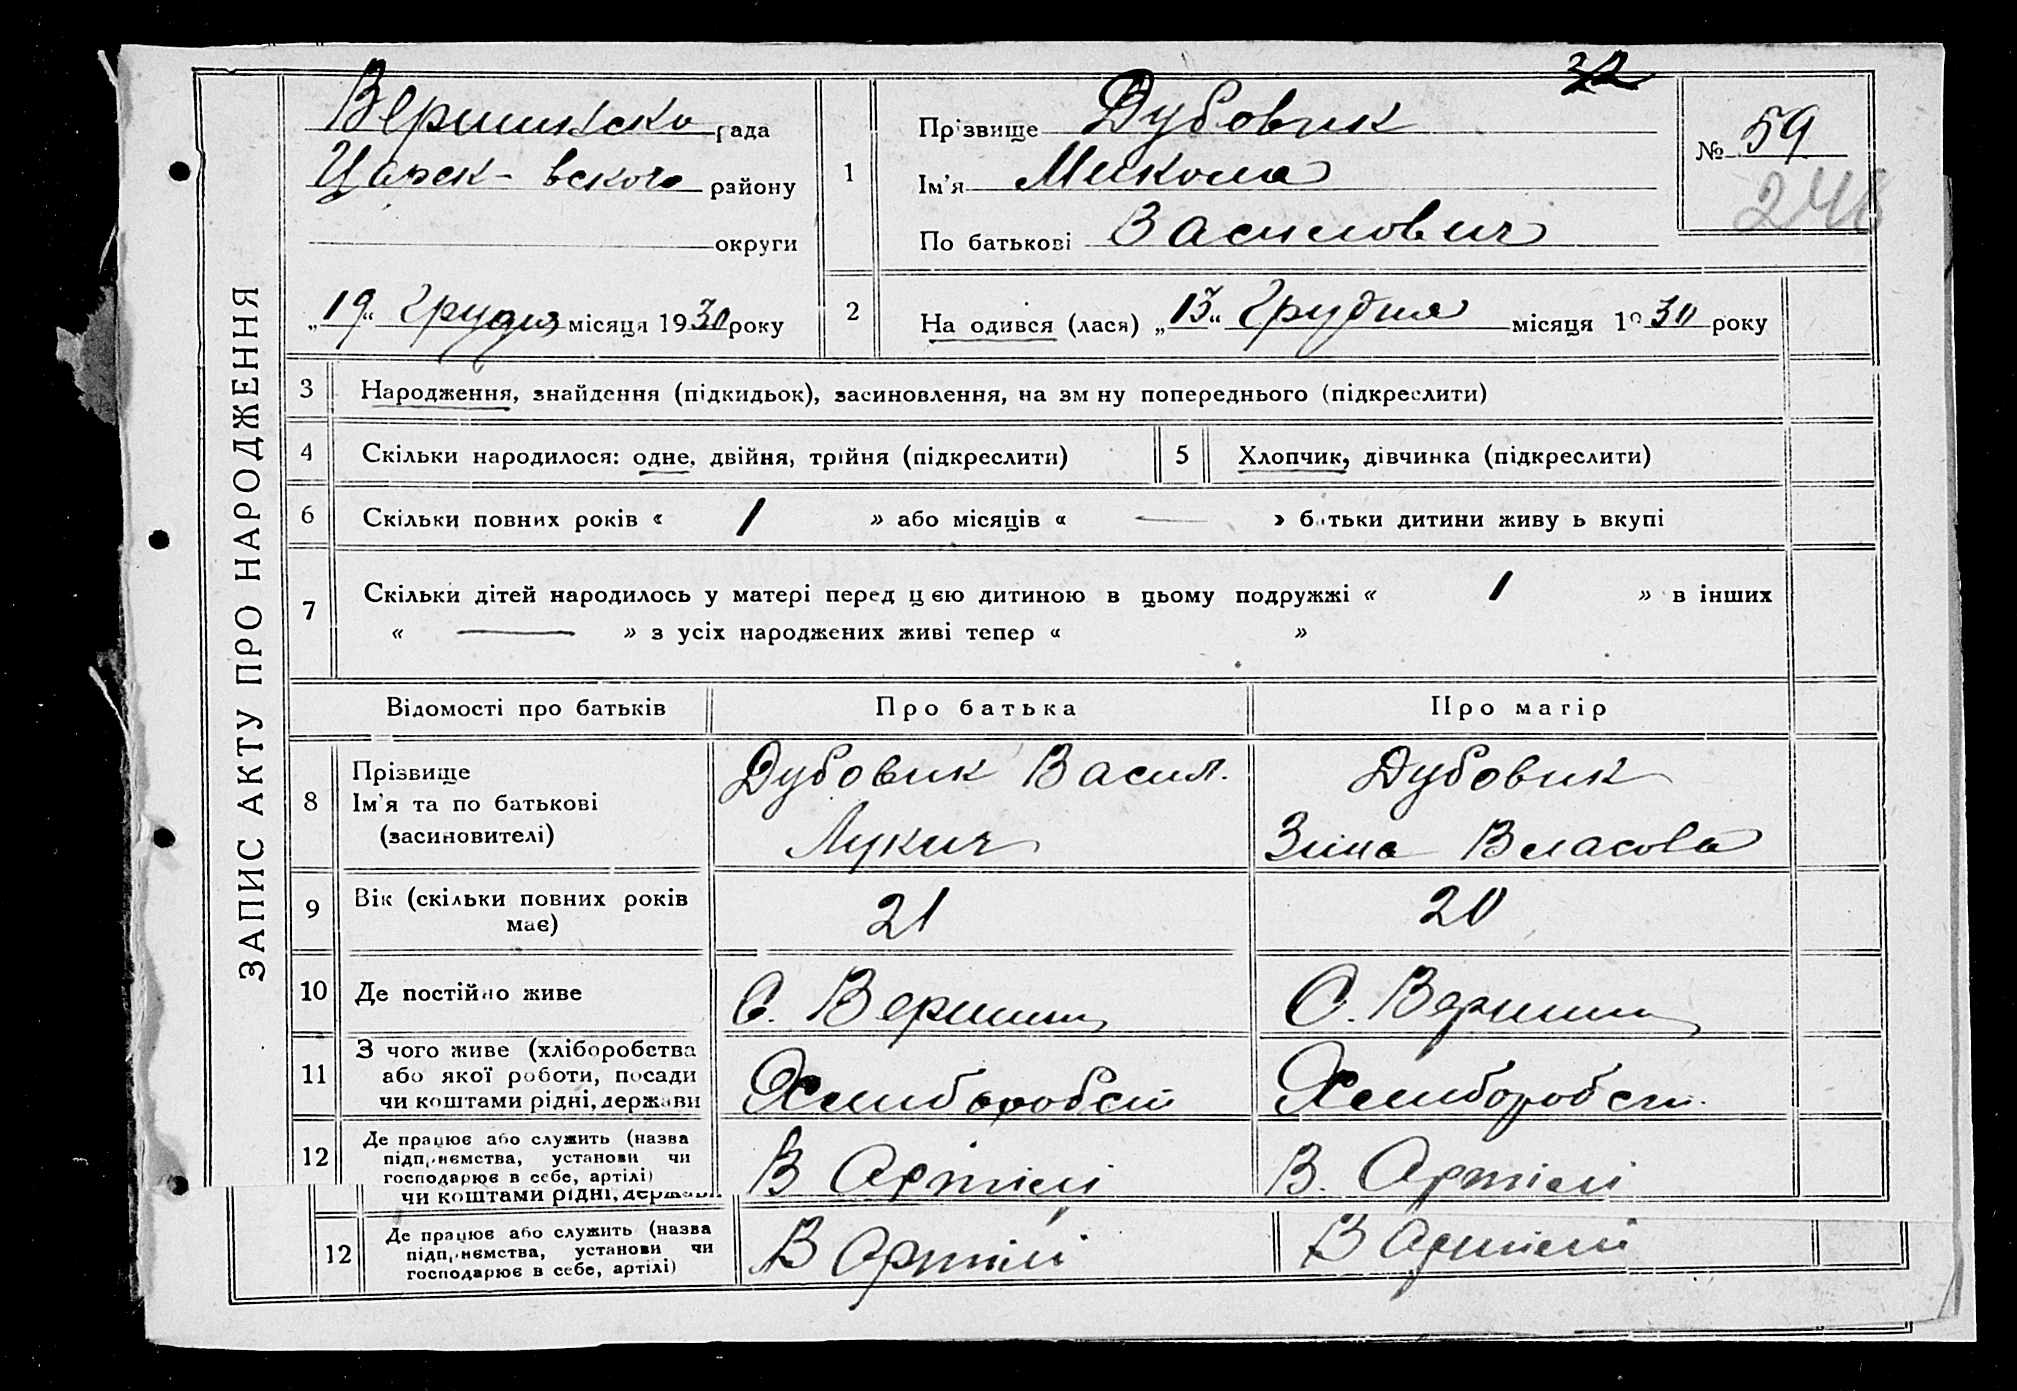 ЗАПИС АКТУ ПРО НАРОДЖЕННЯ
Вершинсько рада
Царск-вского району
округи
„19“ Грудня місяця 1930 року
1
Прізвище Дубовик
Ім'я Микола
По батькові Василович
№ 59
246
2
На одився (лася) „13“ Грудня місяця 1930 року
3 Народження, знайдення (підкидьок), засиновлення, на зм ну попереднього (підкреслити)
4 Скільки народилося: одне, двійня, трійня (підкреслити)
5 Хлопчик, дівчинка (підкреслити)
6 Скільки повних років « 1 » або місяців « — » б тьки дитини живу ь вкупі
7 Скільки дітей народилось у матері перед ц єю дитиною в цьому подружжі « 1 » в інших
« — » з усіх народжених живі тепер « »
Відомості про батьків Про батька Про матір
8 Прізвище
Ім'я та по батькові
(засиновителі)
Дубовик Васил.
Лукич
Дубовик
Зина Власова
9 Вік (скільки повних років
має)
21 20
10 Де постійно живе С. Вершини С. Вершини
11 З чого живе (хліборобства
або якої роботи, посади
чи коштами рідні, держави
Хлиборобст Хлиборобст.
12 Де працює або служить (назва
підп немства, установи чи
господарює в себе, артілі)
В Артілі В. Артілі
чи коштами рідні, держави
12 Де працює або служить (назва
підп немства, установи чи
господарює в себе, артілі)
В Артілі В Артілі